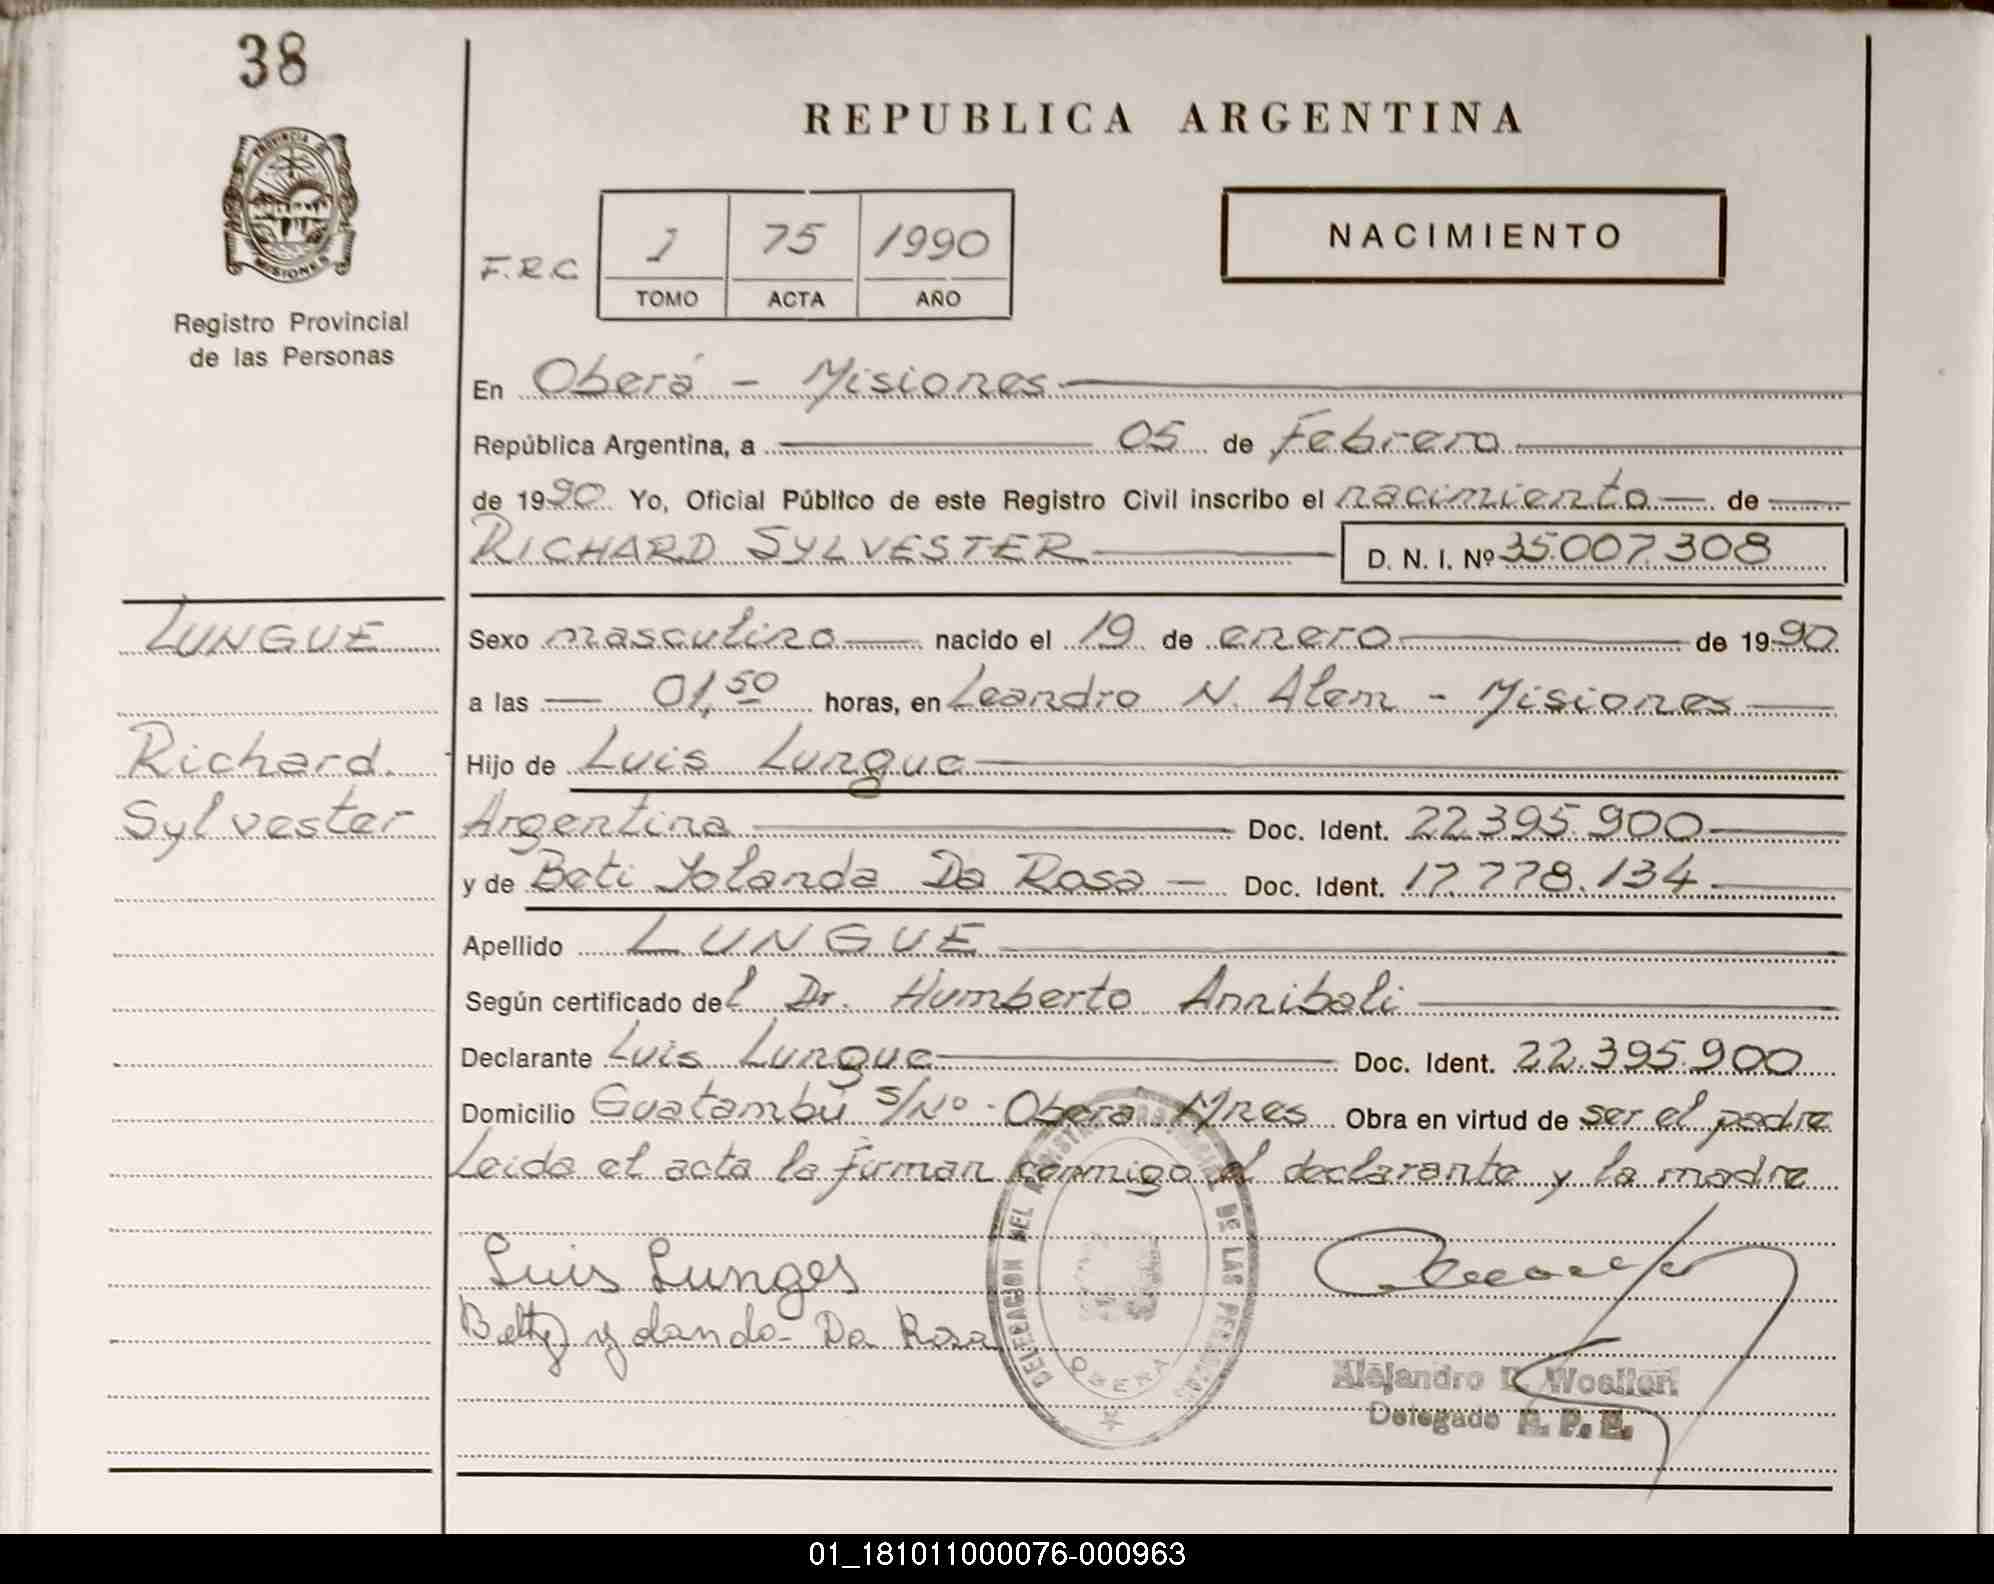 38
PROVINCIA DE
MISIONES
Registro Provincial
de las Personas
REPUBLICA ARGENTINA
F.R.C 1 75 1990
TOMO ACTA AÑO
NACIMIENTO
En Oberá - Misiones
República Argentina, a 05 de Febrero
de 1990 Yo, Oficial Público de este Registro Civil inscribo el nacimiento de
RICHARD SYLVESTER D. N. I. Nº 35.007.308
LUNGUE
Richard
Sylvester
Sexo masculino nacido el 19 de enero de 1990
a las 01,50 horas, en Leandro N. Alem - Misiones
Hijo de Luis Lungue
Argentina Doc. Ident. 22.395.900
y de Beti Yolanda Da Rosa - Doc. Ident. 17.778.134
Apellido LUNGUE
Según certificado del Dr. Humberto Annibali
Declarante Luis Lungue Doc. Ident. 22.395.900
Domicilio Guatambú s/Nº - Oberá Mnes Obra en virtud de ser el padre
Leida el acta la firman conmigo el declarante y la madre
Luis Lunges
Betty yolanda - Da Rosa
DELEGACION DEL REGISTRO PROVINCIAL DE LAS PERSONAS
OBERA
Alejandro
Delegado R. P. P.
01_181011000076-000963